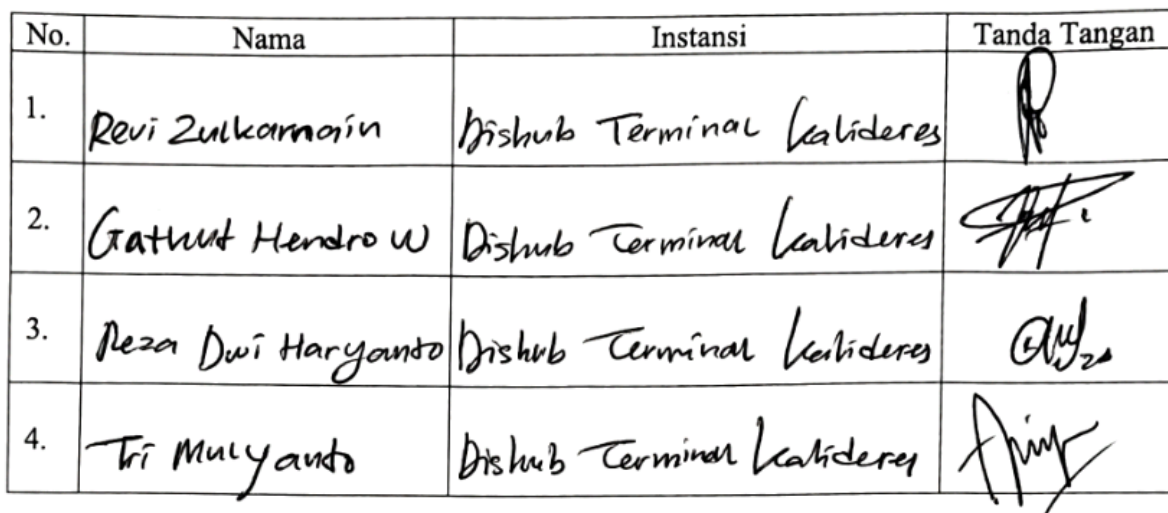 No. Nama Instansi Tanda Tangan
1. Revi Zulkarnain Dishub Terminal Kalideres
2. Gathut Hendro W Dishub Terminal Kalideres
3. Reza Dwi Haryanto Dishub Terminal Kalideres
4. Tri Mulyanto Dishub Terminal Kalideres